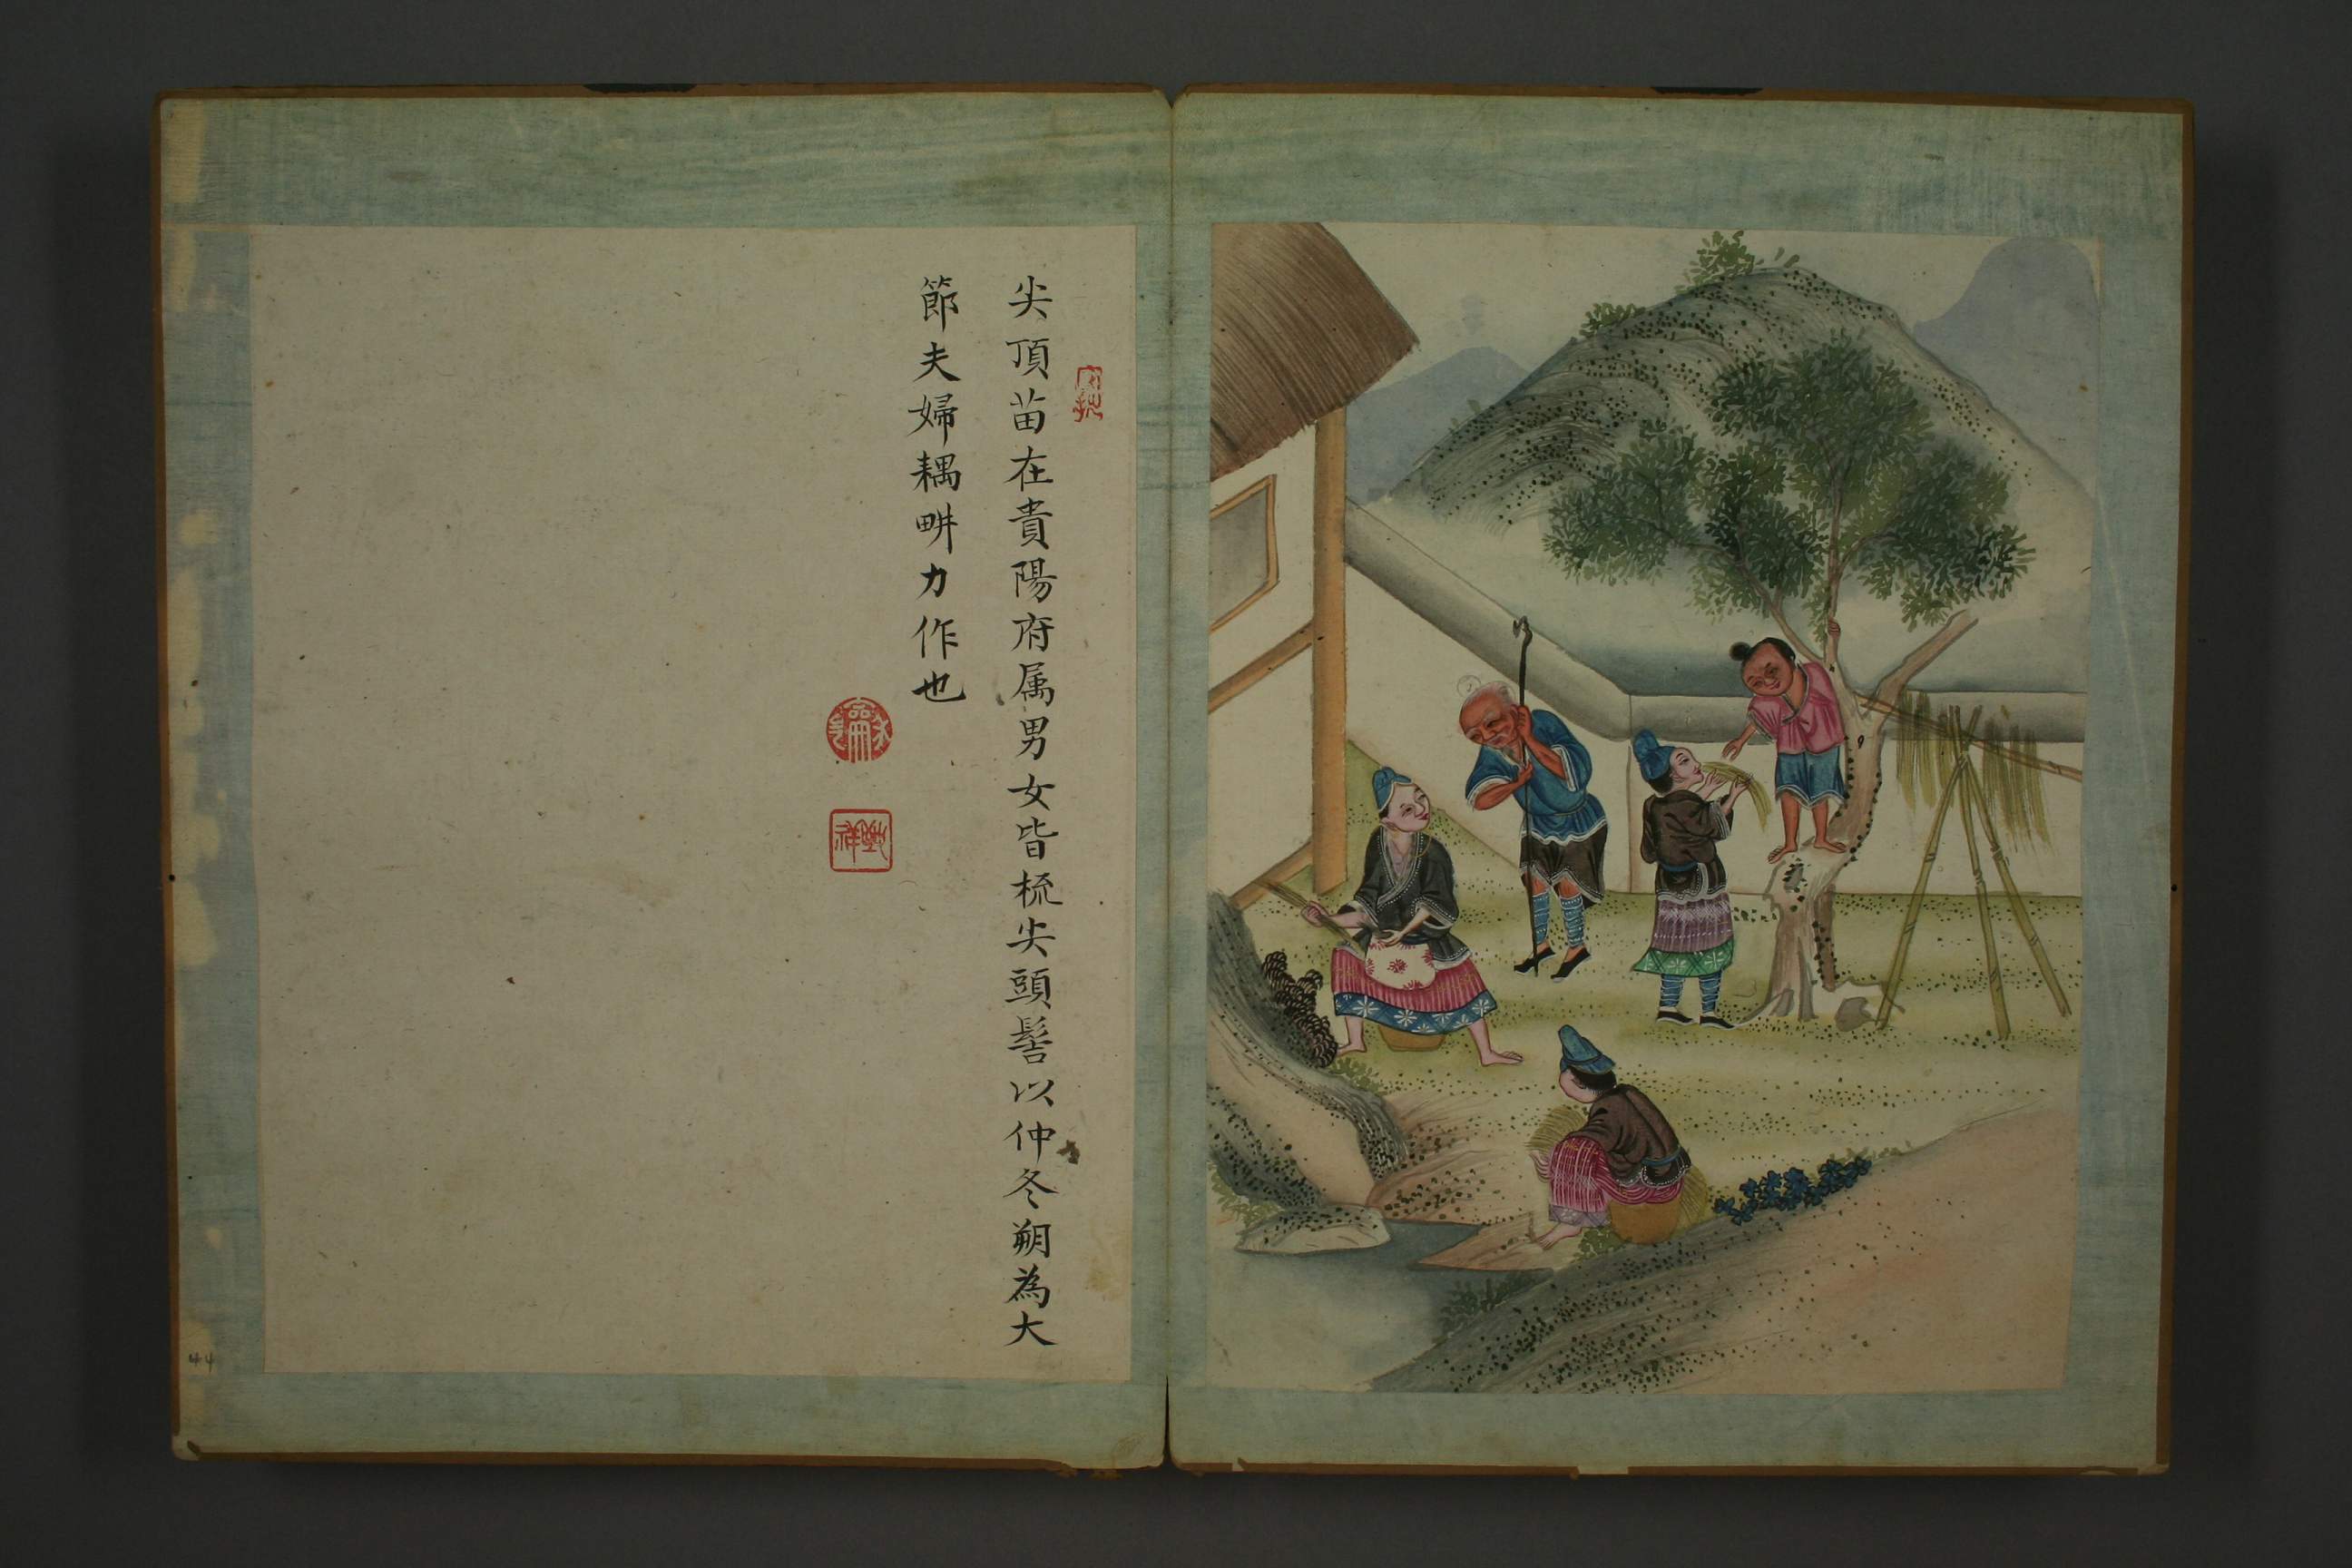 尖頂苗在貴陽府属男女皆梳尖頭髻以仲冬朔為大
節夫婦耦畊力作也
44